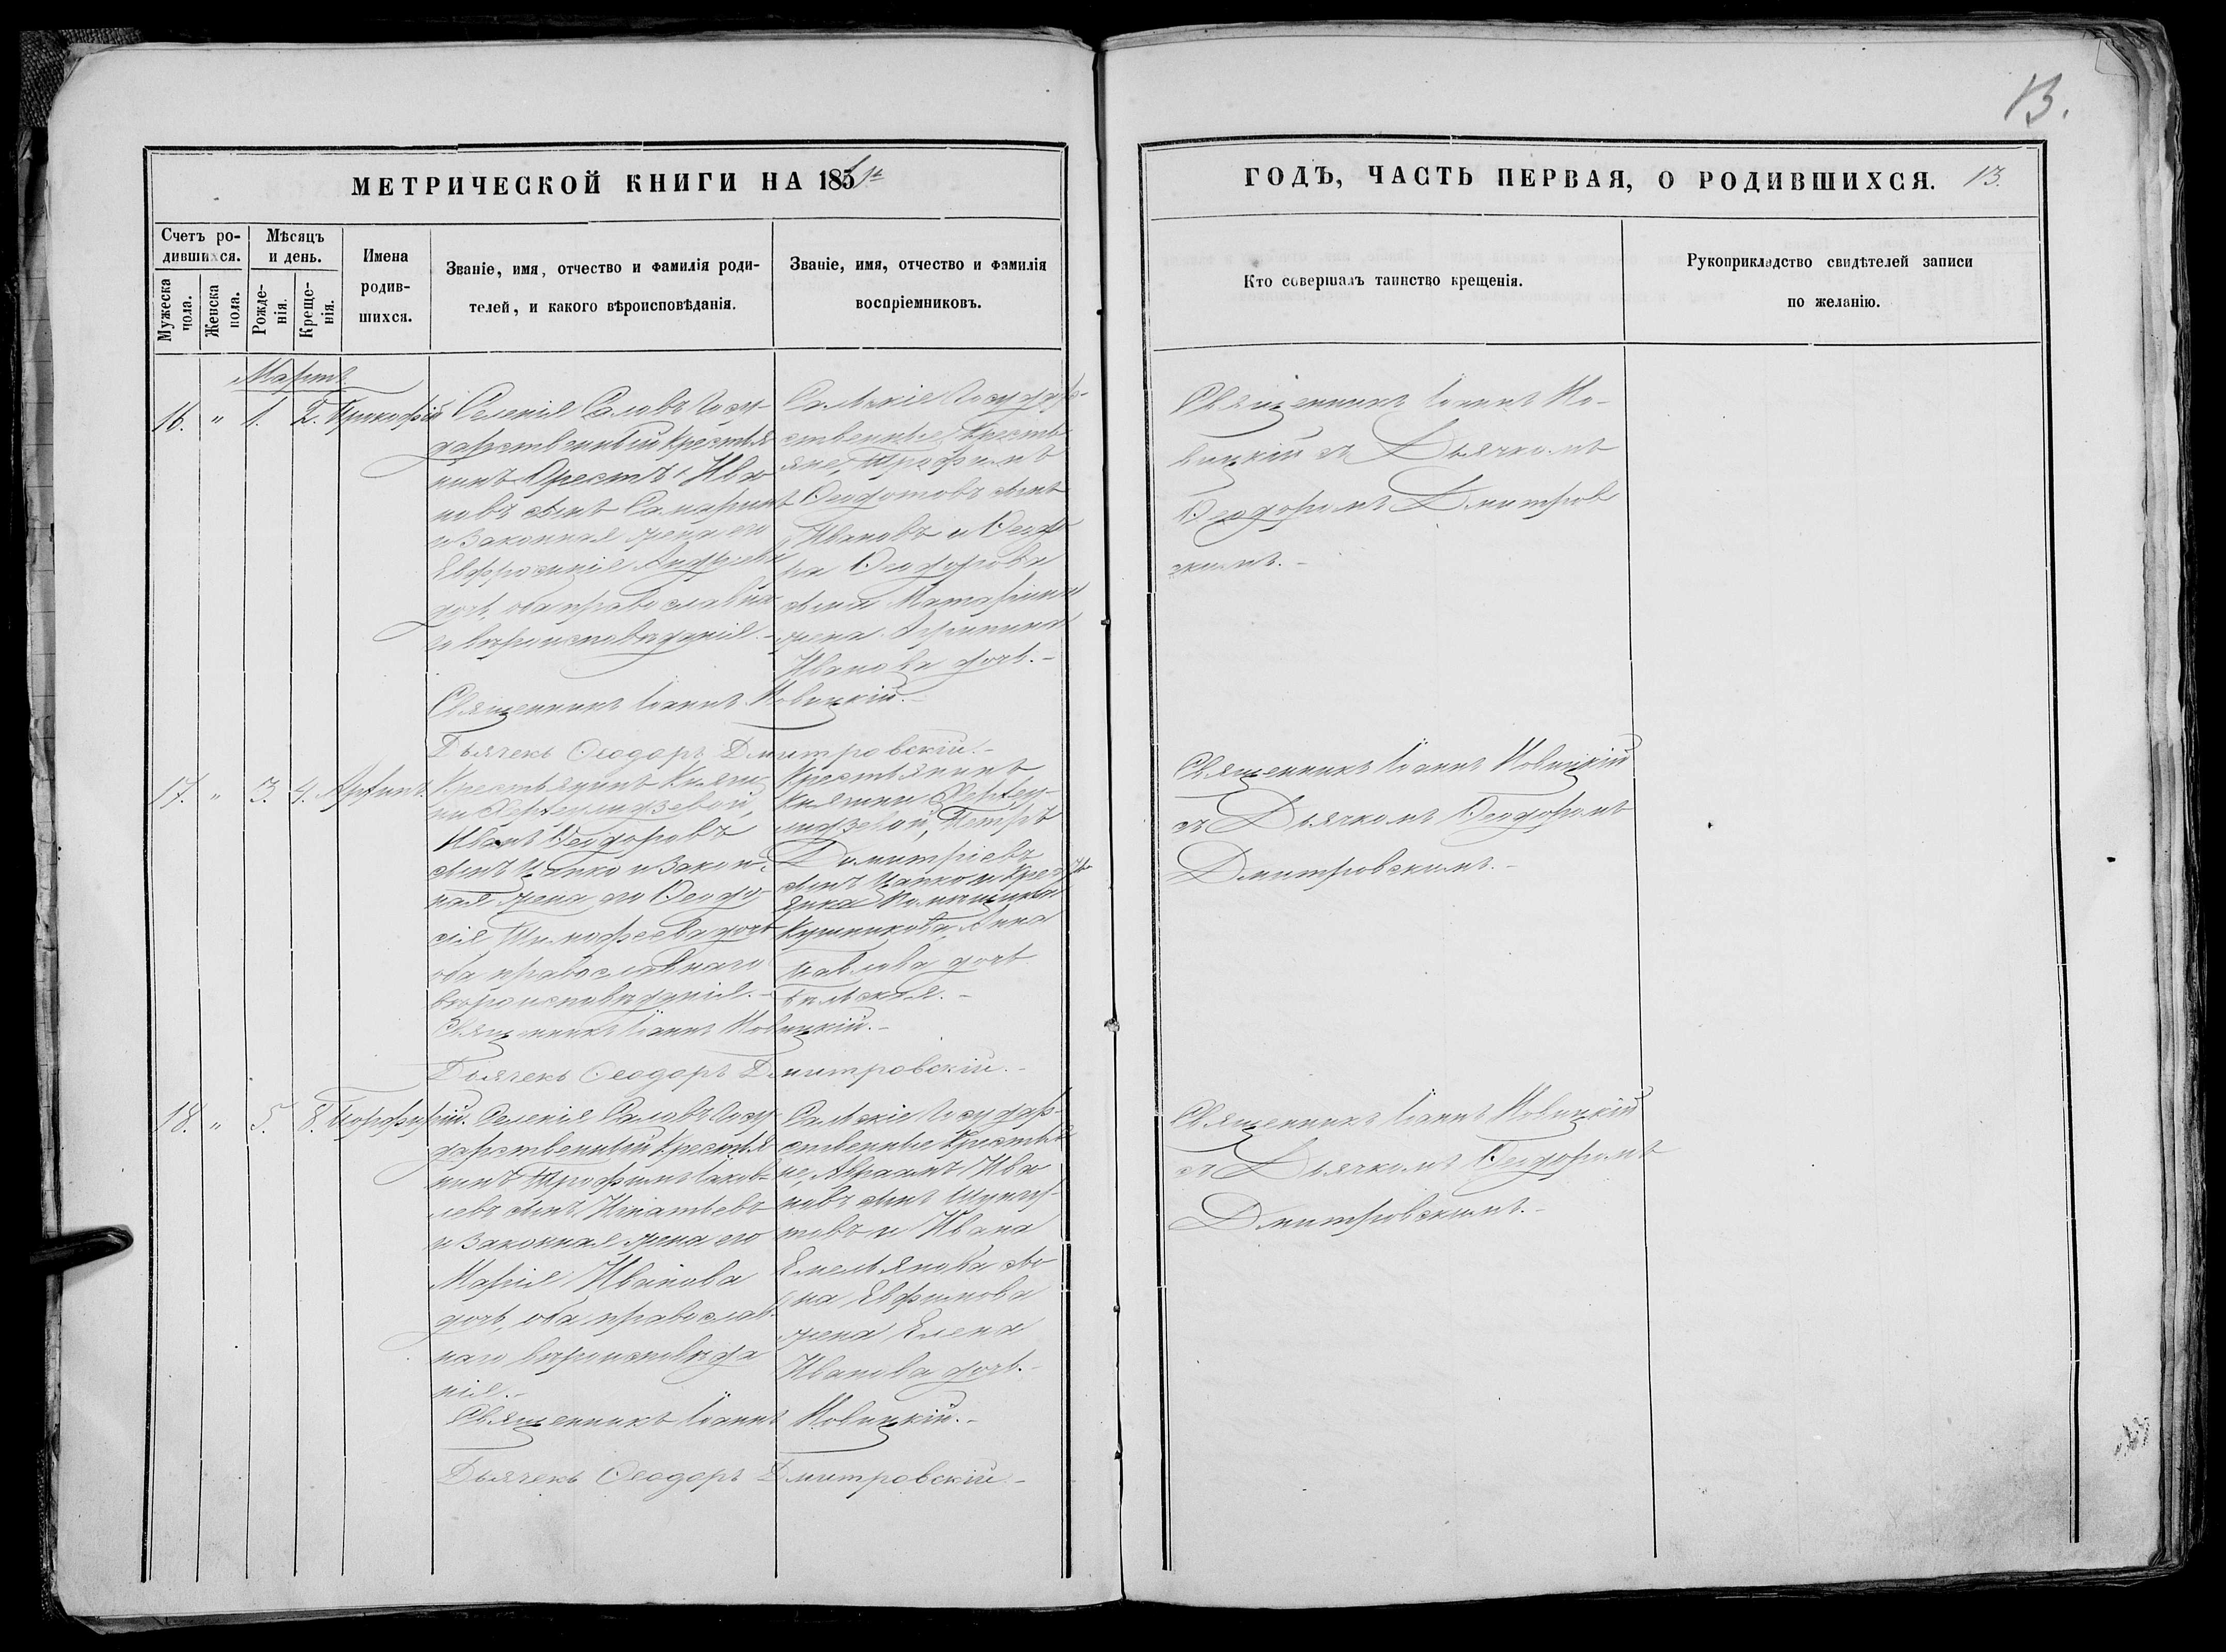 13.
МЕТРИЧЕСКОЙ КНИГИ НА 185
ГОДЪ, ЧАСТЬ ПЕРВАЯ, О РОДИВШИХСЯ. 13.
Счетъ ро-
дившихся.
Мужеска
пола.
Женска
пола.
Мѣсяцъ
и день.
Рожде-
нія.
Креще-
нія.
Имена
родив-
шихся.
Званіе, имя, отчество и фамилія роди-
телей, и какого вѣроисповѣданія.
Званіе, имя, отчество и фамилія
воспріемниковъ.
Кто совершалъ таинство крещенія.
Рукоприкладство свидѣтелей записи
по желанію.
Мартъ
16. " 1. 2. Прокофій
Селенія Саловъ Госу-
дарственный крестья
нинъ Орестъ Ива
новъ сынъ
и законная жена его
Евфросинія Андреева
дочь, оба православна
го вѣроисповѣданія.-
Священникъ Іоаннъ Новицкій.-
Дьячекъ Ѳеодоръ Дмитровскій.-
Сальскіе Государ-
ственные кресть
яне, Трофимъ
Ѳедотовъ сынъ
Ивановъ и Ѳедо
ра Ѳеодорова
сына
жена Агрипина
Иванова дочь.-
Священникъ Іоаннъ Но-
вицкій съ Дьячкомъ
Ѳеодоромъ Дмитров
скимъ.-
17. " 3. 4.
Крестьянинъ Княги
ни
Иванъ Ѳеодоровъ
сынъ Цапко и закон-
ная жена его Ѳеодо
сія Тимофеева дочь
оба православнаго
вѣроисповѣданія.-
Священникъ Іоаннъ Новицкій.-
Дьячекъ Ѳеодоръ Дмитровскій.-
Крестьянинъ
Княгини
Петръ
Димитріевъ
сынъ Цапко и
Помѣщика
Кушникова, Анна
Павлова дочь
Бѣльская.-
Священникъ Іоаннъ Новицкій
съ Дьячкомъ Ѳеодоромъ
Дмитровскимъ.-
18. " 5. 8. Порфирій.
Селенія Саловъ Госу
дарственный крестья
нинъ Трофимъ Іаков-
левъ сынъ Игнатьевъ
и законная жена его
Марія Иванова
дочь, оба православ-
наго вѣроисповѣда
нія.-
Священникъ Іоаннъ Новицкій.-
Дьячекъ Ѳеодоръ Дмитровскій.-
Сальскіе Государ-
ственные крестья
не, Авраамъ Ива
новъ сынъ
и Ивана
Емельянова сы
на Евфимова
жена Елена
Иванова дочь.-
Священникъ Іоаннъ Новицкій
съ Дьячкомъ Ѳеодоромъ
Дмитровскимъ.-